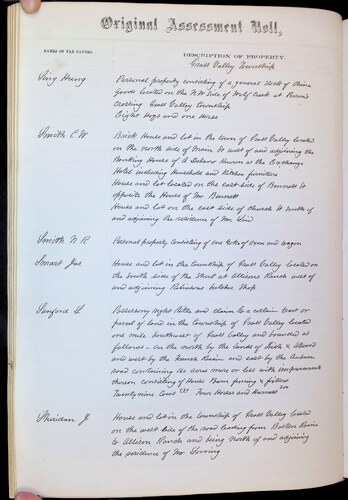 Original Assessment Roll,
NAMES OF TAX PAYERS.
DESCRIPTION OF PROPERTY.
Grass Valley Township
Sing Hung
Personal property consisting of a general stock of China
Goods located on the N W side of Wolf Creek at
Crossing Grass Valley Township
Eight Hogs and one Horse
Smith E W
Brick House and lot in the town of Grass Valley located
on the north side of Main St west of and adjoining the
Banking House of A Delano known as the Exchange
Hotel including Household and Kitchen furniture
House and lot located on the east side of Bennett St
opposite the House of Mr Bennett
House and lot on the east side of Church St south of
and adjoining the residence of Mr
Smith N R
Personal property consisting of one Yoke of Oxen and wagon
Smart Jas
House and lot in the township of Grass Valley located on
the south side of the street at Allisons Ranch west of
and adjoining Robinsons butcher Shop
Sanford L
Possessory right title and claim to a certain tract or
parcel of land in the township of Grass Valley located
one mile southwest of Grass Valley and bounded as
follows - on the north by the lands of &
and west by the French Ravine and east by the Auburn
road containing 160 acres more or less with improvements
thereon consisting of House Barn fencing &
Twenty nine Cows Four Horses and Harness
Sheridan J
House and lot in the township of Grass Valley located
on the west side of the road leading from Boston Ravine
to Allison Ranch and being north of and adjoining
the residence of Mr